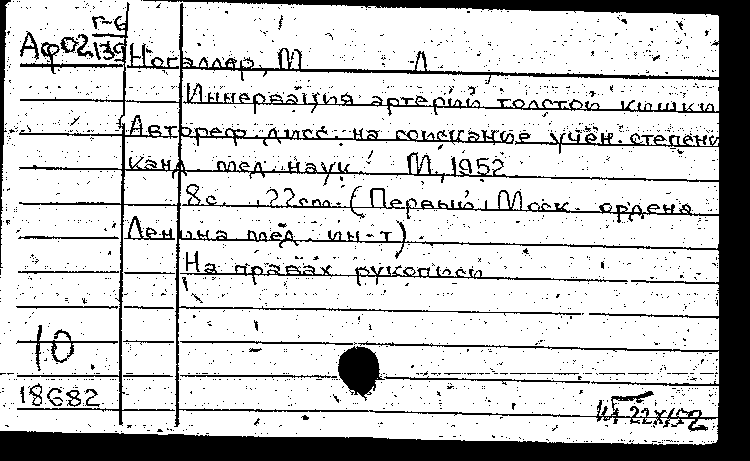 Г-6
Аф02 139 Ногаллер, М Л
Иннервация артерий толстой кишки
Автореф. дисс. на соискание учен. степени
канд. мед. наук. М., 1952
8с. , 22см. (Первый Моск. ордена
Ленина мед. ин-т)
На правах рукописи
10
18682
22XI52